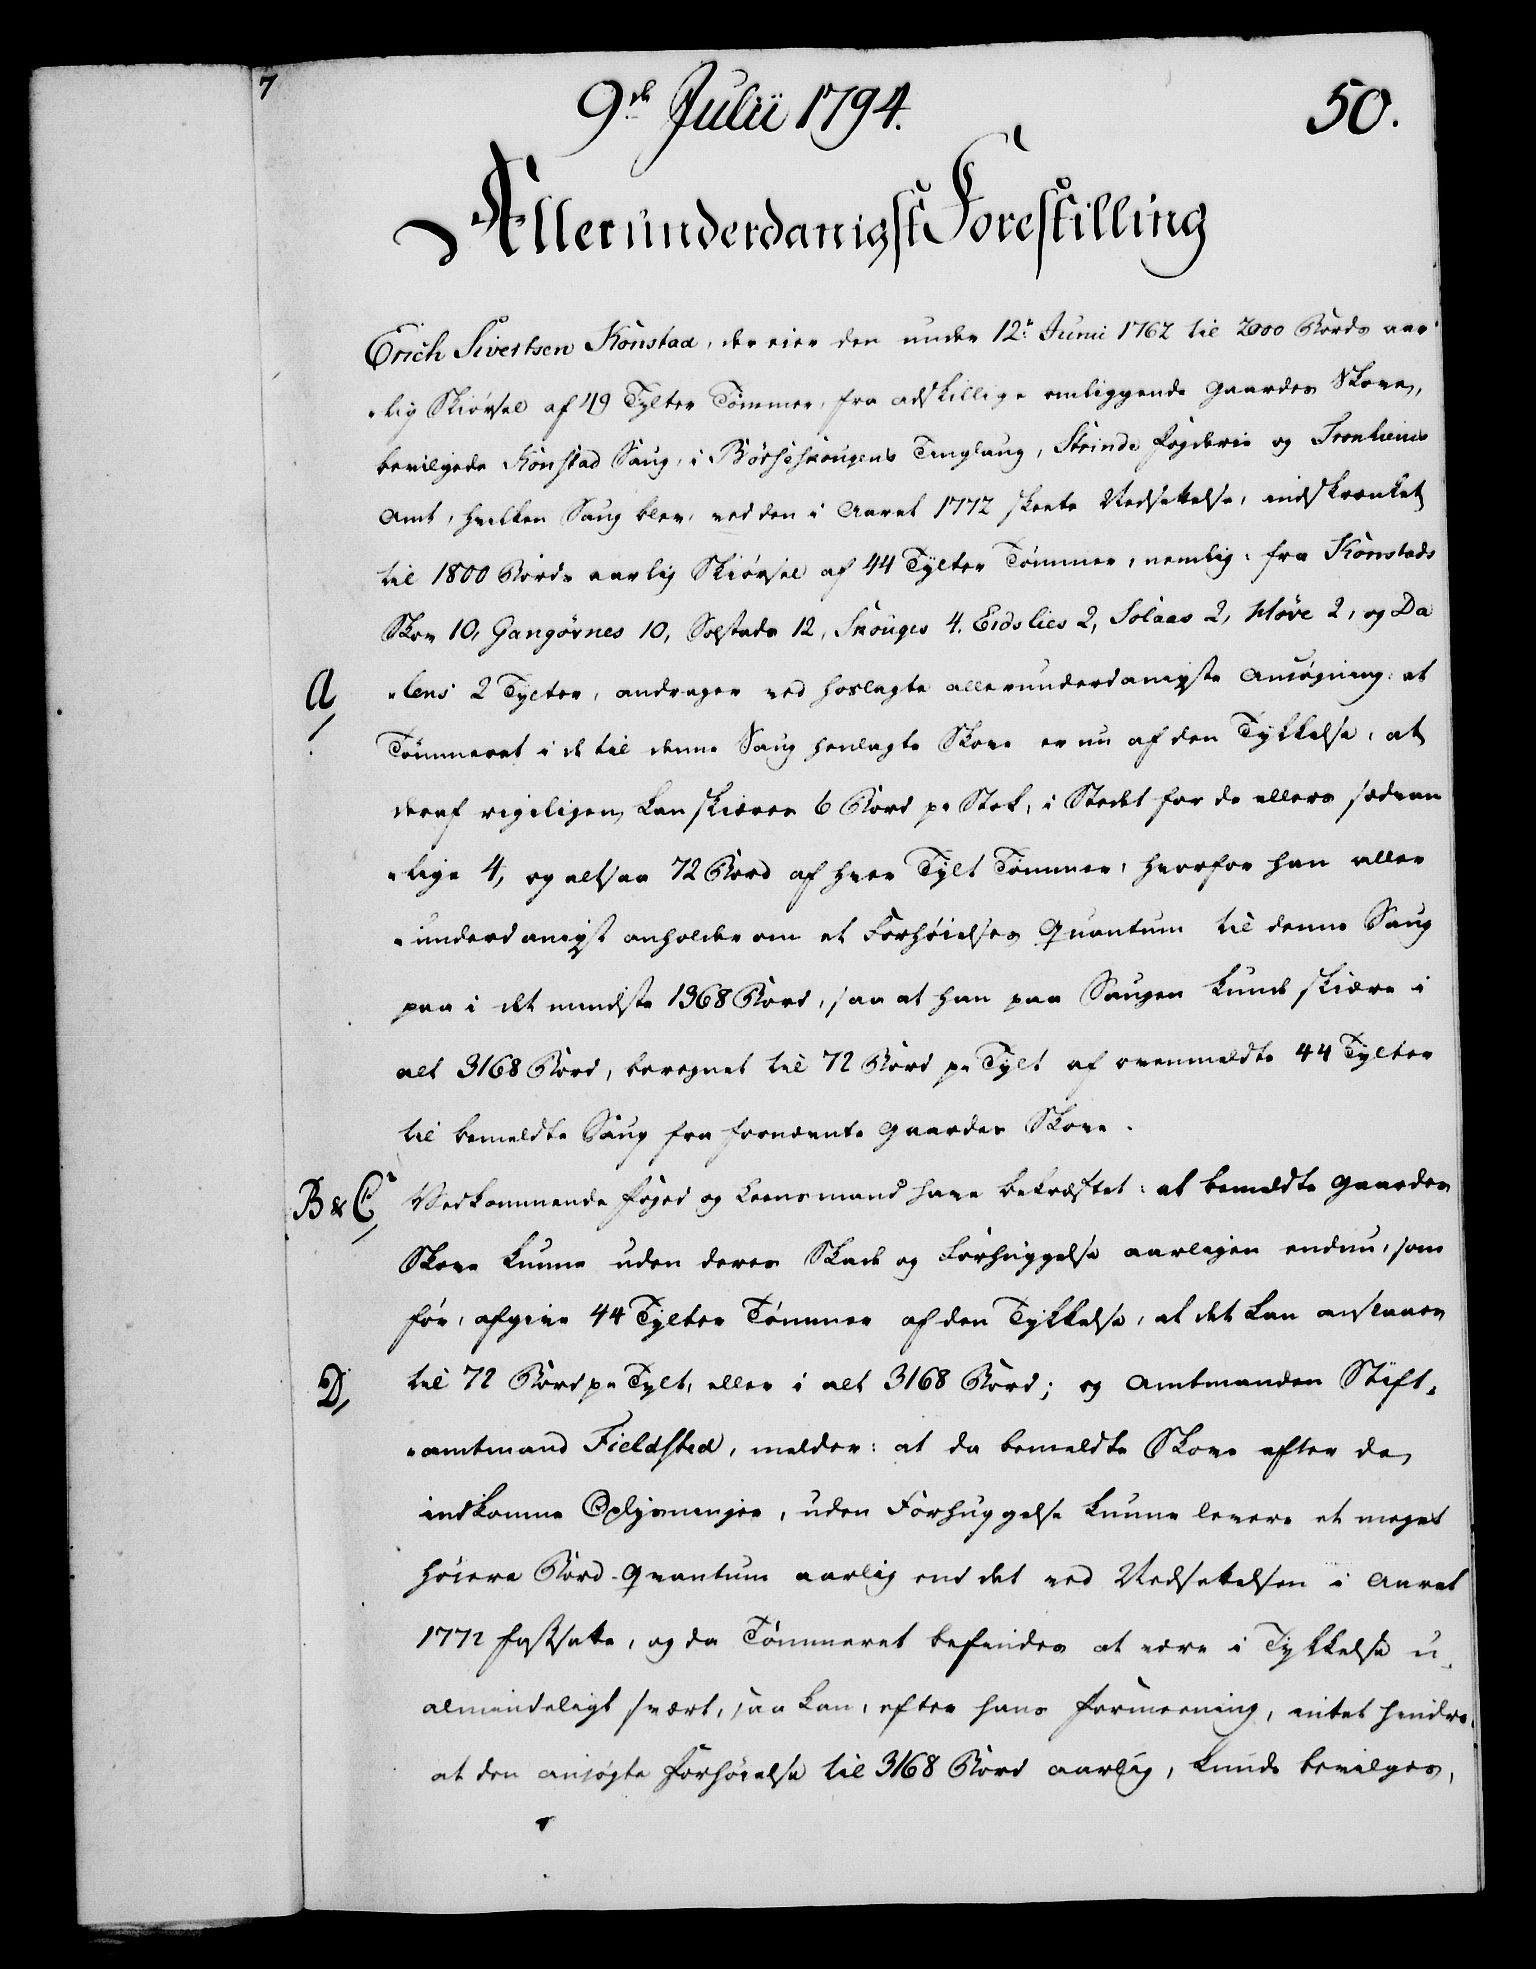 7
9de Julii 1794.
50.
Allerunderdanigst Forestilling
Erich Sivertsen Kønstad, der eier den under 12te Junii 1762 til 2000 Bords aar¬
„lig Skiørsel af 49 Tylter Tømmer, fra adskillige omliggende Gaardes Skove,
bevilgede Kønstad Saug, i Børseskougens Tinglaug, Strinde Fogderie og Tronhiems
Amt, hvilken Saug blev, ved den i Aaret 1772 skeete Nedsættelse, indskrænket
til 1800 Bords aarlig Skiørsel af 44 Tylter Tømmer, nemlig: fra Kønstads
Skov 10, Gangørnes 10, Solstads 12, Skouges 4, Eidslies 2, Solaas 2, Møve 2, og Da
A
„lens 2 Tylter, andrager ved hoslagte allerunderdanigste Ansøgning: at
Tømmeret i de til denne Saug henlagte Skove er nu af den Tykkelse, at
deraf rigeligen kan skiæres 6 Bord pr Stok, i Stedet for de ellers sædvan
„lige 4, og altsaa 72 Bord af hver Tylt Tømmer, hvorfor han aller
„underdanigst anholder om et Forhøielses Quantum til denne Saug
paa i det mindste 1368 Bord, saa at han paa Saugen kunde skiære i
alt 3168 Bord, beregnet til 72 Bord pr Tylt af ovenmeldte 44 Tylter
til bemeldte Saug fra fornævnte Gaardes Skove.
B & C
Vedkommende Foged og Lensmand have bekræftet: at bemeldte Gaardes
Skove kunne uden deres Skade og Forhuggelse aarligen endnu, som
før, afgive 44 Tylter Tømmer af den Tykkelse, at det kan ansaaes
D,
til 72 Bord pr Tylt, eller i alt 3168 Bord; og Amtmanden Stift„
„amtmand Fieldsted, melder: at da bemeldte Skove efter de
indkomne Oplysninger, uden Forhuggelse kunne levere et meget
høiere Bord-Quantum aarlig end det ved Nedsættelsen i Aaret
1772 fastsatte, og da Tømmeret befindes at være i Tykkelse u„
almindeligt svært, saa kan, efter hans Formeening, intet hindre
at den ansøgte Forhøielse til 3168 Bord aarlig, kunde bevilges,